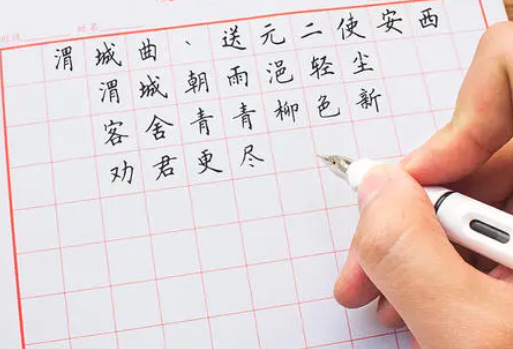 姓名
渭城曲、送元二使安西
渭城朝雨浥轻尘
客舍青青柳色新
劝君更尽